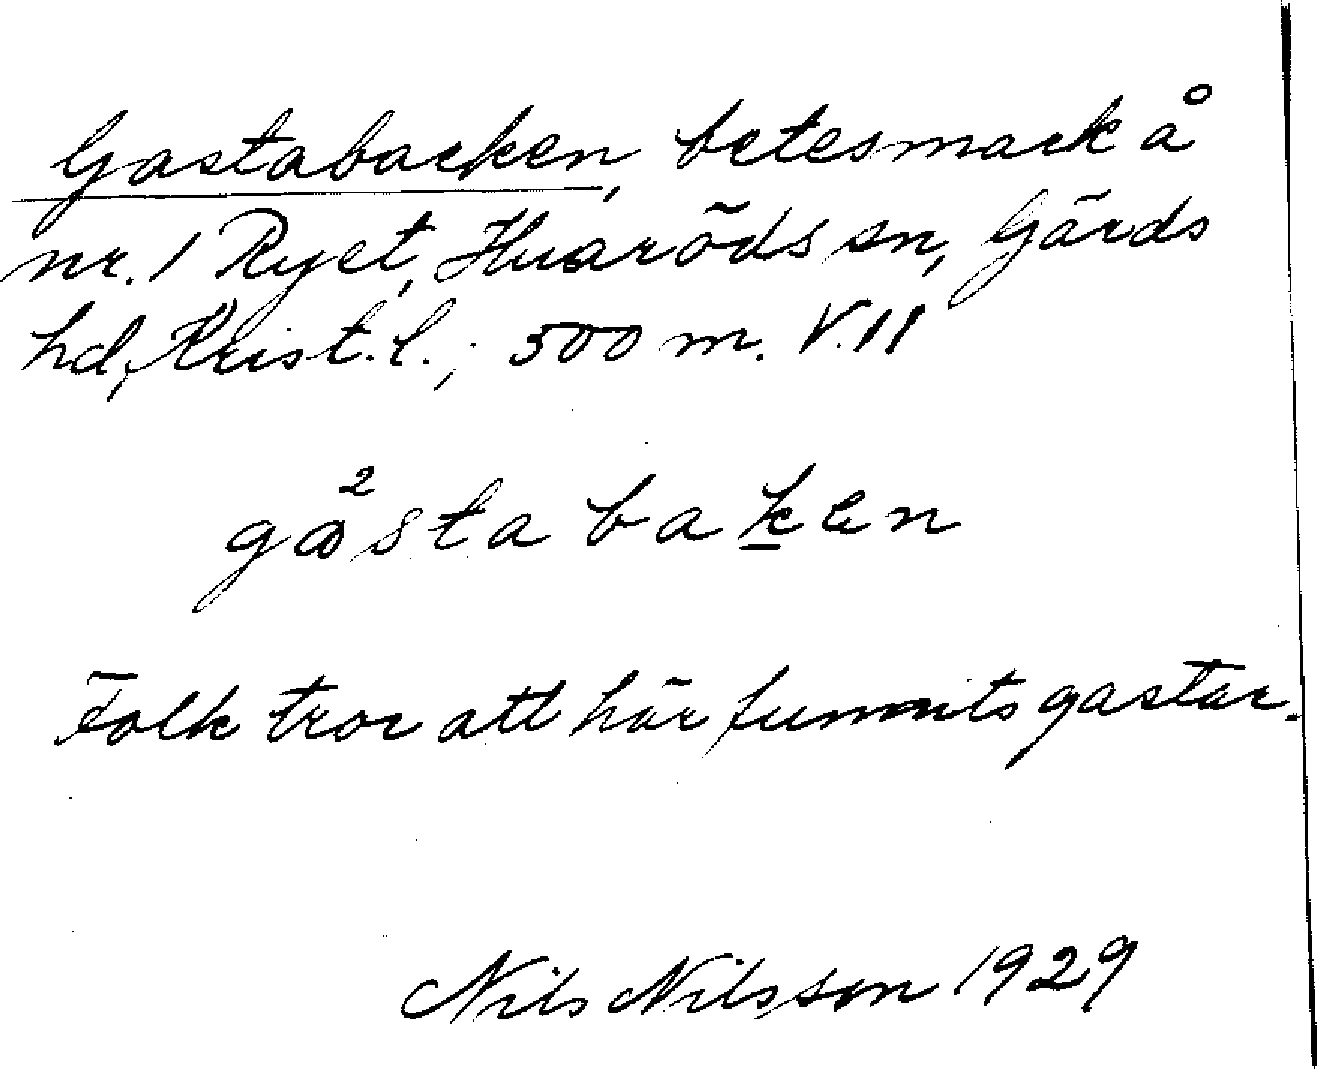 Gastabacken, betesmark å
nr. 1 Ryet, Huaröds sn, Gärds
hd, Krist. l.; 500 m. V. 11
gastabaken
Folk tror att här funnits gastar.
Nils Nilsson 1929